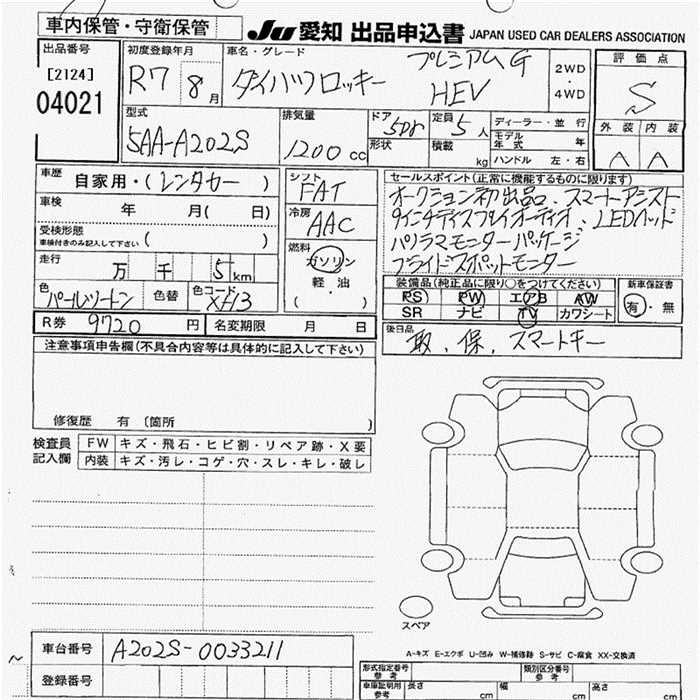 車内保管・守衛保管
JU 愛知 出品申込書 JAPAN USED CAR DEALERS ASSOCIATION
出品番号
[2124]
04021
初度登録年月
R7 8月
車名・グレード
ダイハツロッキー
プレミアムG
HEV
2WD
・
4WD
評価点
S
型式
5AA-A202S
排気量
1200 cc
ドア 5Dr
形状
定員 5人
積載 kg
ディーラー・並行
モデル年式 年
ハンドル 左・右
外装 内装
A A
車歴
自家用・(レンタカー )
車検
年 月( 日)
受検形態
車検付きのみ記入して下さい ( )
走行
万 千 5km
色 パールツートン
色替
色コード XF13
シフト
FAT
冷房
AAC
燃料
ガソリン
軽・油
( )
セールスポイント(正常に機能するものに限ります)
オークション初出品、スマートアシスト
9インチディスプレイオーディオ、LEDヘッド
パノラマモニターパッケージ
ブライドスポットモニター
装備品(純正品に限り○をつけてください)
PS PW エアB AW
SR ナビ TV カワシート
新車保証書
有・無
R券 9720 円
名変期限 月 日
後日品
取、保、スマートキー
注意事項申告欄(不具合内容等は具体的に記入して下さい)
修復歴 有 〔箇所 〕
検査員
記入欄
FW キズ・飛石・ヒビ割・リペア跡・X要
内装 キズ・汚レ・コゲ・穴・スレ・キレ・破レ
スペア
A-キズ E-エクボ U-凹み W-補修跡 S-サビ C-腐食 XX-交換済
車台番号 A202S-0033211
登録番号
形式指定番号
参考
類別区分番号
参考
車庫証明用
参考
長さ cm 幅 cm 高さ cm